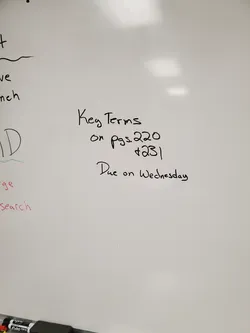 ve
nch
Key Terms
on pgs 220
+231
Due on Wednesday
ge
search